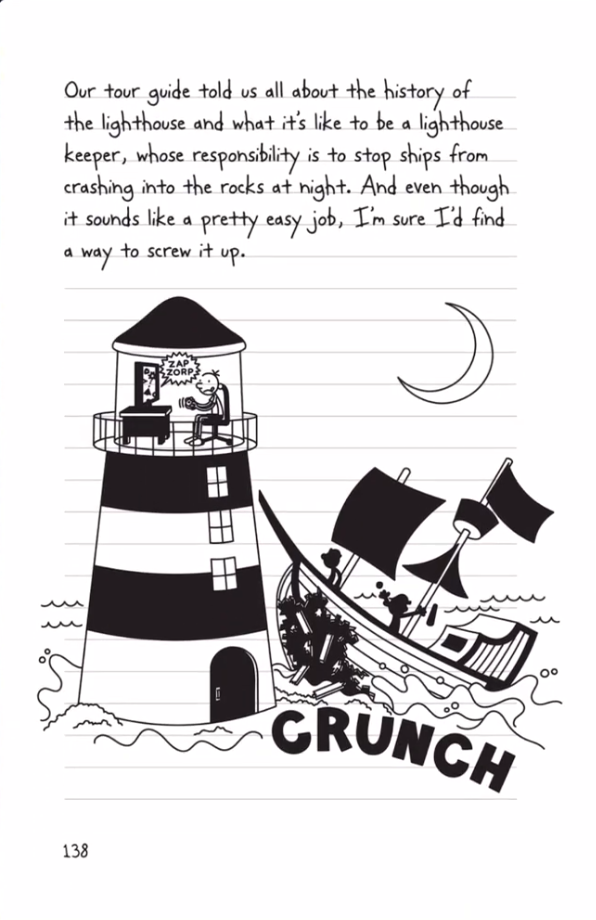 Our tour guide told us all about the history of
the lighthouse and what it's like to be a lighthouse
keeper, whose responsibility is to stop ships from
crashing into the rocks at night. And even though
it sounds like a pretty easy job, I'm sure I'd find
a way to screw it up.
ZAP
ZORP
CRUNCH
138